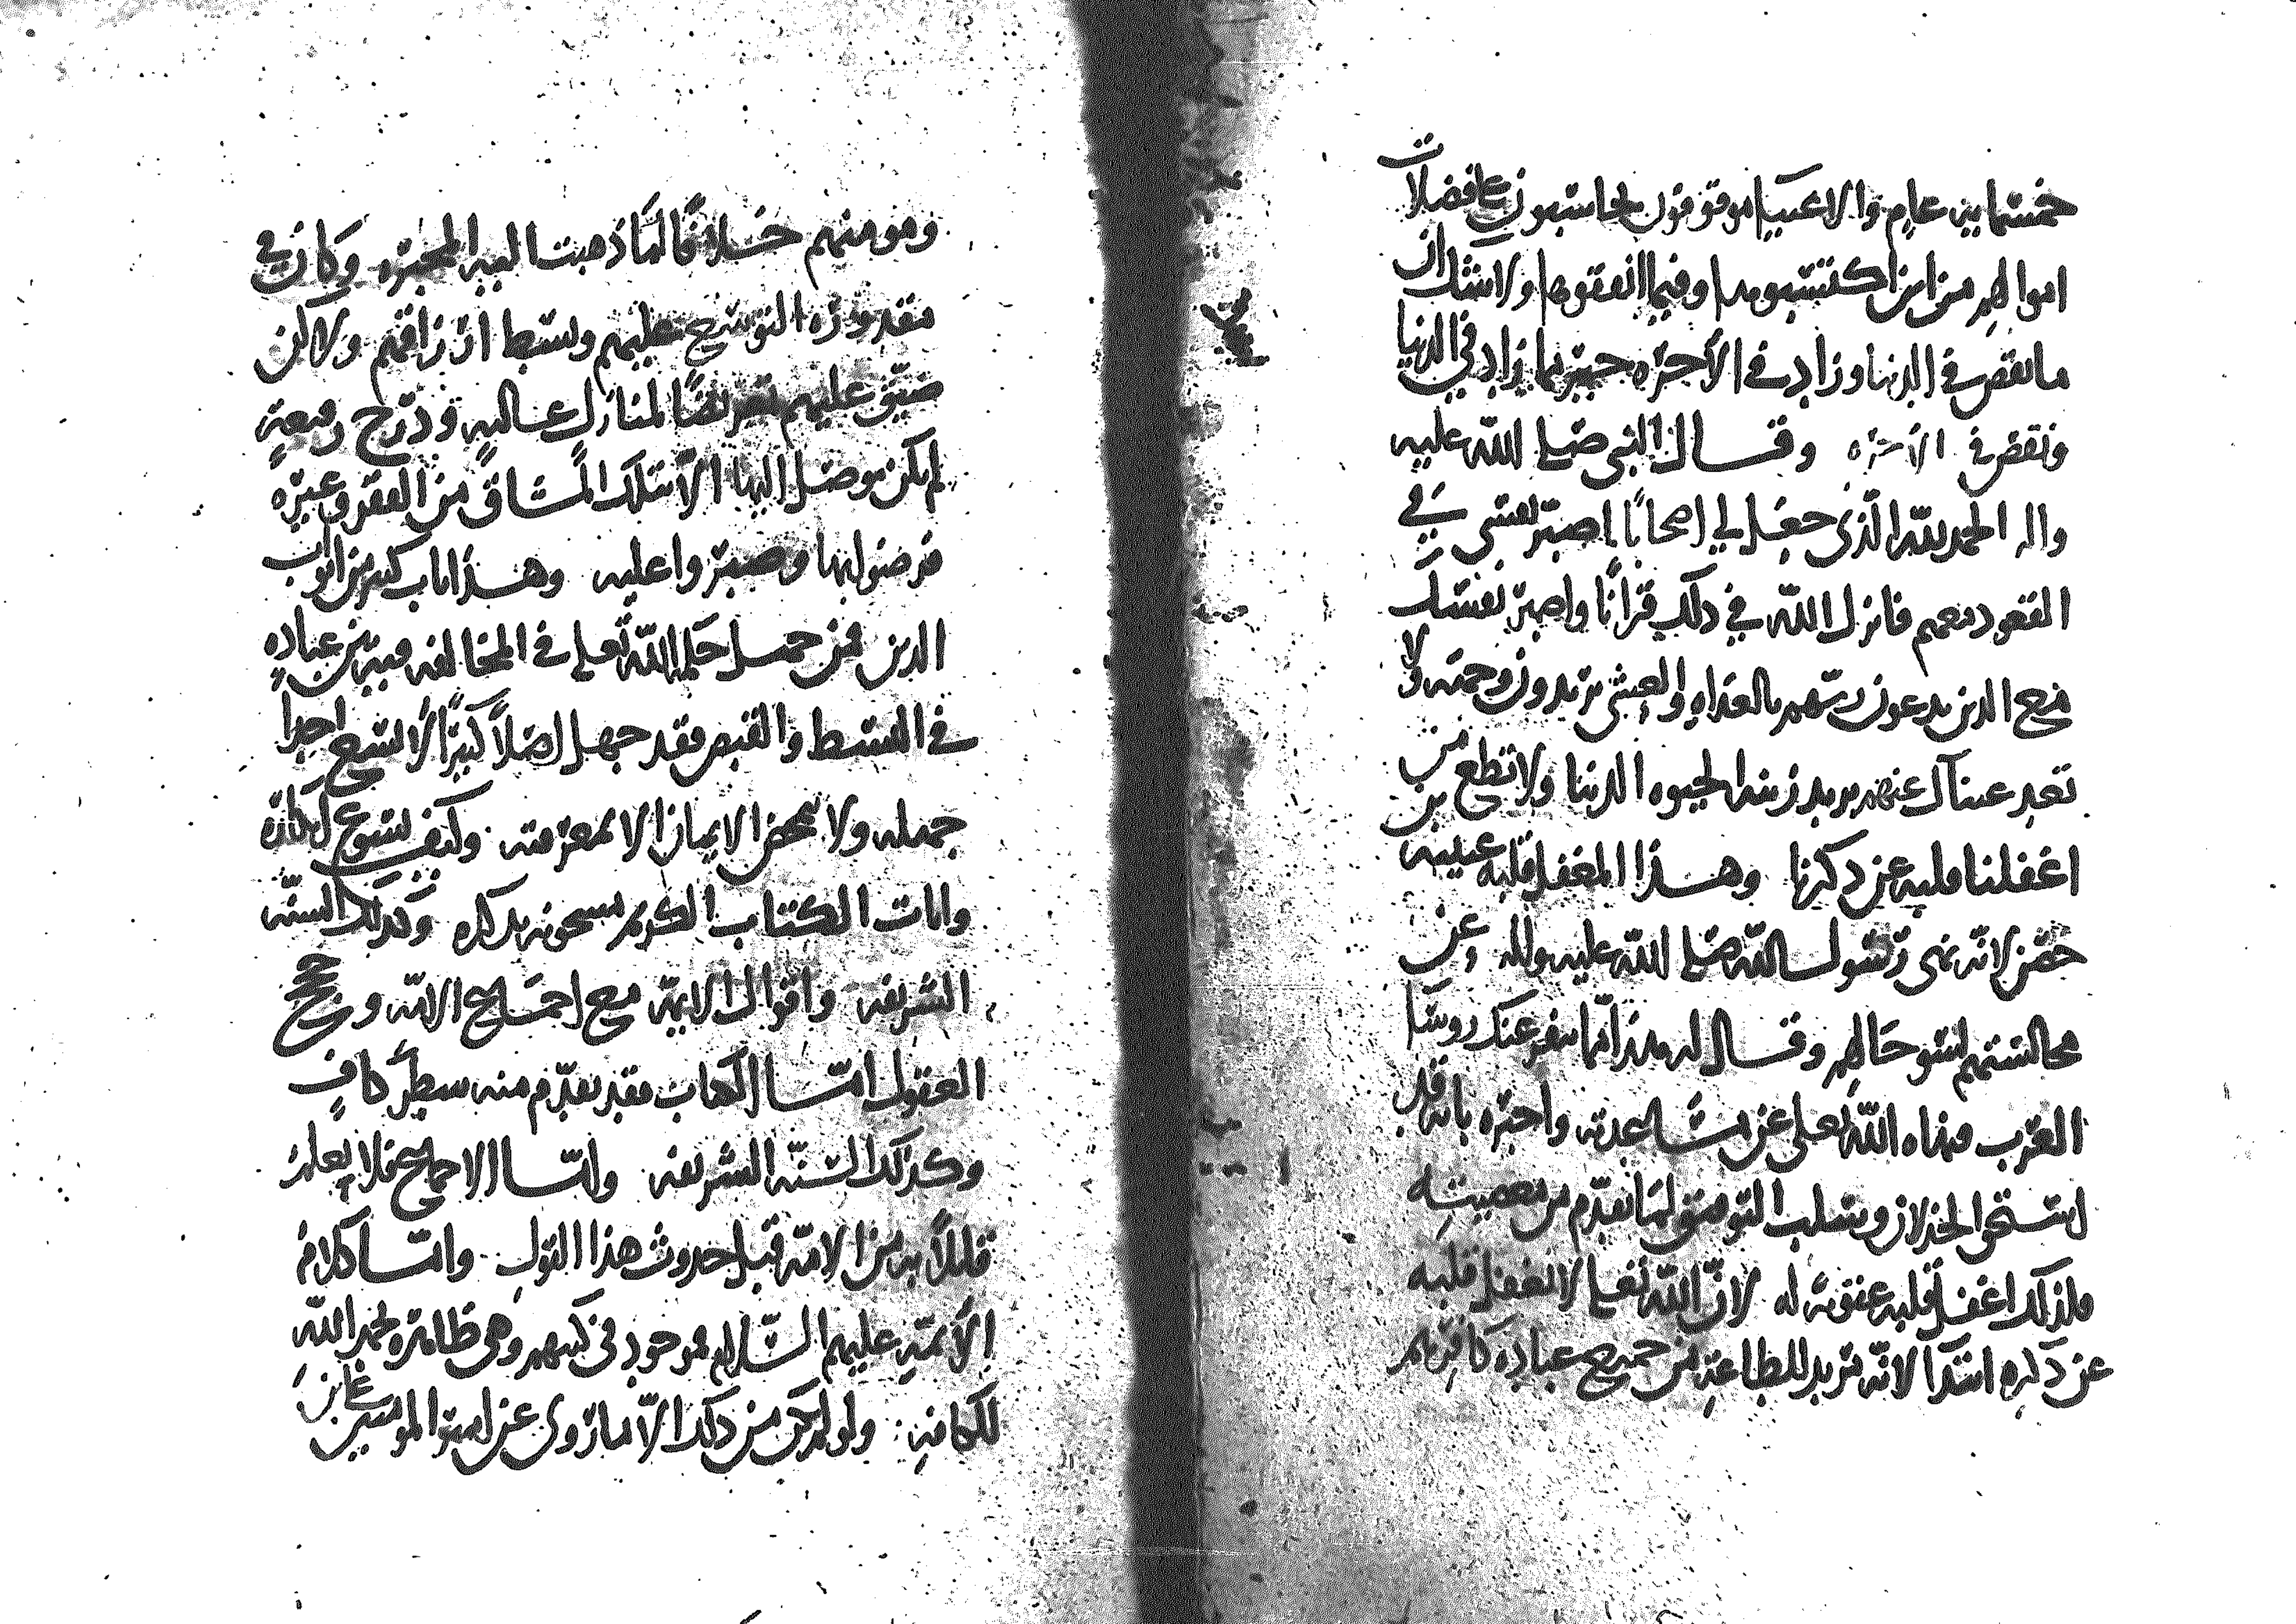 خمسمايه عام والاغنيا موقوفون يحاسبون على فضلات
اموالهم من اين اكتسبوها وفيما انفقوها ولا شك ان
ما نقص في الدنيا وزاد في الآخره خير مما زاد في الدنيا
ونقص في الآخره وقال النبي صلى الله عليه
واله الحمد لله الذي جعل لي اصحابًا اصبر نفسي في
القعود معهم فانزل الله في ذلك قرانًا واصبر نفسك
مع الذين يدعون ربهم بالغداه والعشي يريدون وجهه ولا
تعد عيناك عنهم تريد زينه الحيوه الدنيا ولا تطع من
اغفلنا قلبه عن ذكرنا وهذا المغفل قلبه عيينه بن
حصن لانه نهى رسول الله صلى الله عليه واله وعن
مجالستهم لسو حالهم وقال له هذا انما ينفر عنك روسا
العرب فنهاه الله تعلى عن مساعدته واخبره بانه قد
استحق الخذلان وسلب التوفيق لما تقدم من معصيته
فلذلك اغفل قلبه عقوبه له لان الله تعلى لا يغفل قلبه
عن ذكره ابتدآ لانه مريد للطاعه من جميع عباده كافرهم
ومومنهم خلافًا لما ذهبت اليه المجبره وكان في
مقدوره التوسيع عليهم وبسط ارزاقهم ولاكن
ضيق عليهم تعريضًا لمنازل عاليه ودرج رفيعه
لم يكن يوصل اليها الا بتلك المشاق من الفقر وغيره
فرضوا بها وصبروا عليه وهذا باب كبير من ابواب
الدين فمن جهل حكم الله تعلى في المخالفه فيه بين عباده
في البسط والقبض فقد جهل اصلًا كبيرًا لا يسع احدا
جهله ولا يمحض الايمان الا بمعرفته وكيف يسوغ انكاره
وايات الكتاب الكريم مشحونه بذكره وكذلك السنه
الشريفه واقوال الايمه مع اجماع الامه وحجج
العقول امـا الكتاب فقد تقدم منه سطر كاف
وكذلك السنه الشريفه وامـا الاجماع فلا يعلم
قايلًا به من الامه قبل حدوث هذا القول وامـا كلام
الأيمه عليهم السلام فموجود في كتبهم وهي ظاهره بحمد الله
للكافه ولو لم يكن من ذلك الا ما روي عن امير المومنين